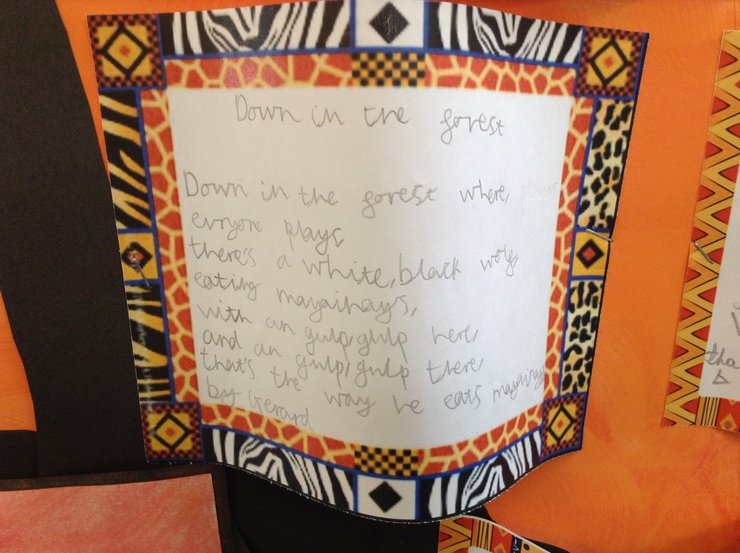 Down in the forest
Down in the forest where,
evryone plays
there's a white, black wolf,
eating mayaihays,
with an gulp, gulp here,
and an gulp, gulp there,
that's the way he eats
by Gerard
tha